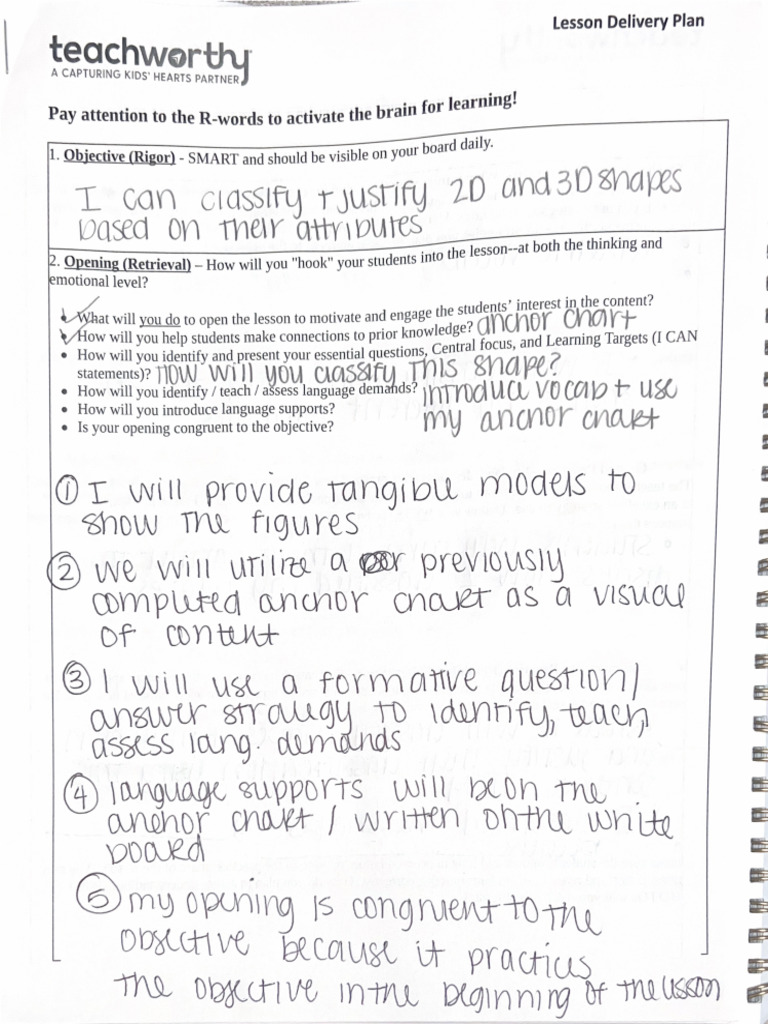 Lesson Delivery Plan
teachworthy
A CAPTURING KIDS' HEARTS PARTNER
Pay attention to the R-words to activate the brain for learning!
1. Objective (Rigor) - SMART and should be visible on your board daily.
I can classify + justify 2D and 3D shapes
based on their attributes
2. Opening (Retrieval) – How will you "hook" your students into the lesson--at both the thinking and
emotional level?
• What will you do to open the lesson to motivate and engage the students' interest in the content?
• How will you help students make connections to prior knowledge? anchor chart
• How will you identify and present your essential questions, Central focus, and Learning Targets (I CAN
statements)? How will you classify this shape?
• How will you identify / teach / assess language demands? introduce vocab + use
• How will you introduce language supports? my anchor chart
• Is your opening congruent to the objective?
① I will provide tangible models to
show the figures
② we will utilize a previously
completed anchor chart as a visual
of content
③ I will use a formative question/
answer strategy to identify, teach,
assess lang. demands
④ language supports will be on the
anchor chart / written on the white
board
⑤ my opening is congruent to the
objective because it practices
the objective in the beginning of the lesson